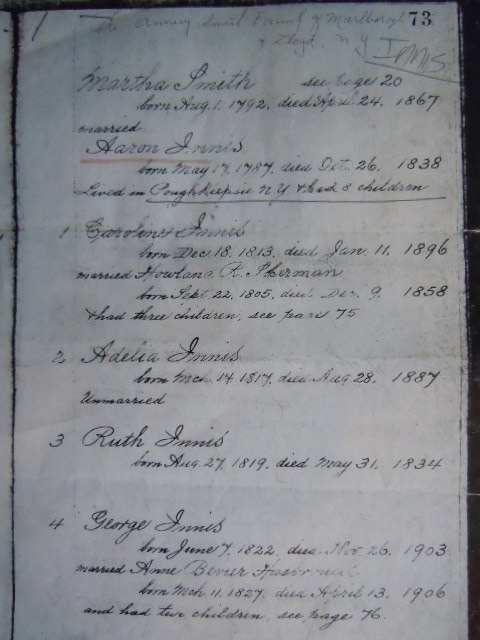 The Smith Family of Marlborough 73
& Lloyd, N.Y. INNIS
Martha Smith see page 20
born Aug. 1. 1792, died April 24. 1867
married
Aaron Innis
born May 17. 1787, died Oct. 26. 1838
Lived in Poughkeepsie N Y & had 8 children
1 Caroline Innis
born Dec. 18. 1813, died Jan. 11. 1896
married Howland R. Sherman
born Sept. 22. 1805, died Dec. 9. 1858
& had three children, see 75
2 Adelia Innis
born Mch. 14 1817, died Aug 28. 1887
Unmarried
3 Ruth Innis
born Aug. 27. 1819, died May 31. 1834
4 George Innis
born June 7. 1822, died Nov. 26. 1903
married Anne Bevier
born Mch 11. 1827, died April 13. 1906
and had two children, see page 76.